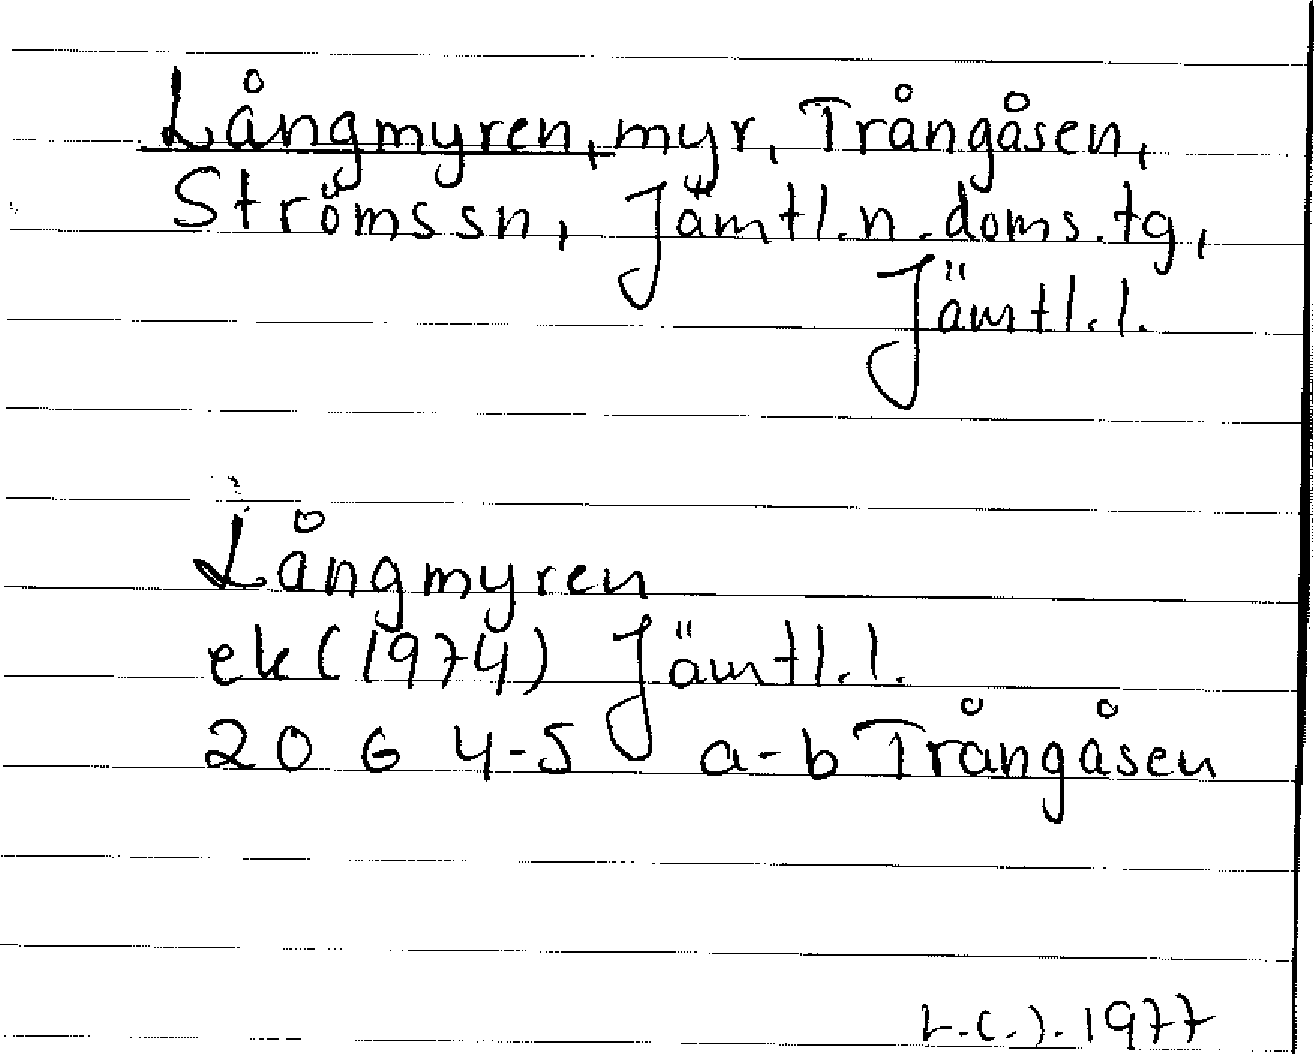 Långmyren, myr, Trångåsen,
Ströms sn, Jämtl. n. doms. tg,
Jämtl. l.
Långmyren
ek (1974) Jämtl. l.
20 G 4-5 a-b Trångåsen
1977